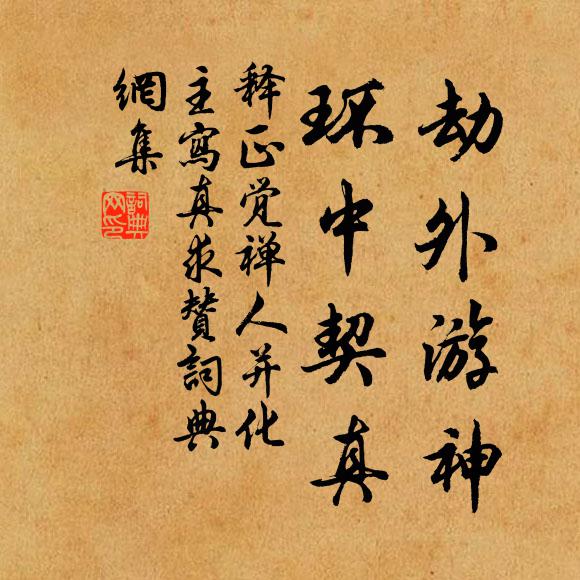 劫外游神
环中契真
释正觉禅人并化
主寫真求赞詞典
網集
詞典
网印